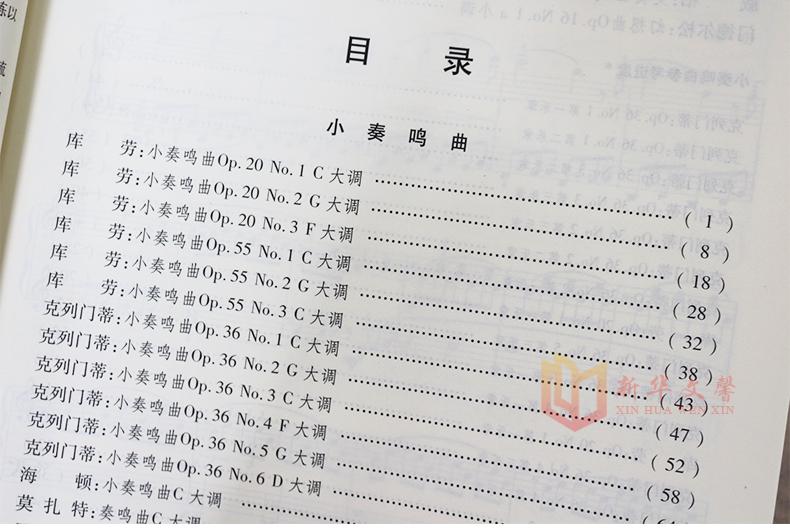 目 录
小奏鸣曲
库 劳:小奏鸣曲Op. 20 No. 1 C大调 ……………… (1)
库 劳:小奏鸣曲Op. 20 No. 2 G大调 ……………… (8)
库 劳:小奏鸣曲Op. 20 No. 3 F大调 ……………… (18)
库 劳:小奏鸣曲Op. 55 No. 1 C大调 ……………… (28)
库 劳:小奏鸣曲Op. 55 No. 2 G大调 ……………… (32)
库 劳:小奏鸣曲Op. 55 No. 3 C大调 ……………… (38)
克列门蒂:小奏鸣曲Op. 36 No. 1 C大调 ……………… (43)
克列门蒂:小奏鸣曲Op. 36 No. 2 G大调 ……………… (47)
克列门蒂:小奏鸣曲Op. 36 No. 3 C大调 ……………… (52)
克列门蒂:小奏鸣曲Op. 36 No. 4 F大调 ……………… (58)
克列门蒂:小奏鸣曲Op. 36 No. 5 G大调 ………………
克列门蒂:小奏鸣曲Op. 36 No. 6 D大调 ………………
海 顿:小奏鸣曲C大调 ………………
莫扎特:奏鸣曲C大调 ………………
新华文馨
XIN HUA WEN XIN